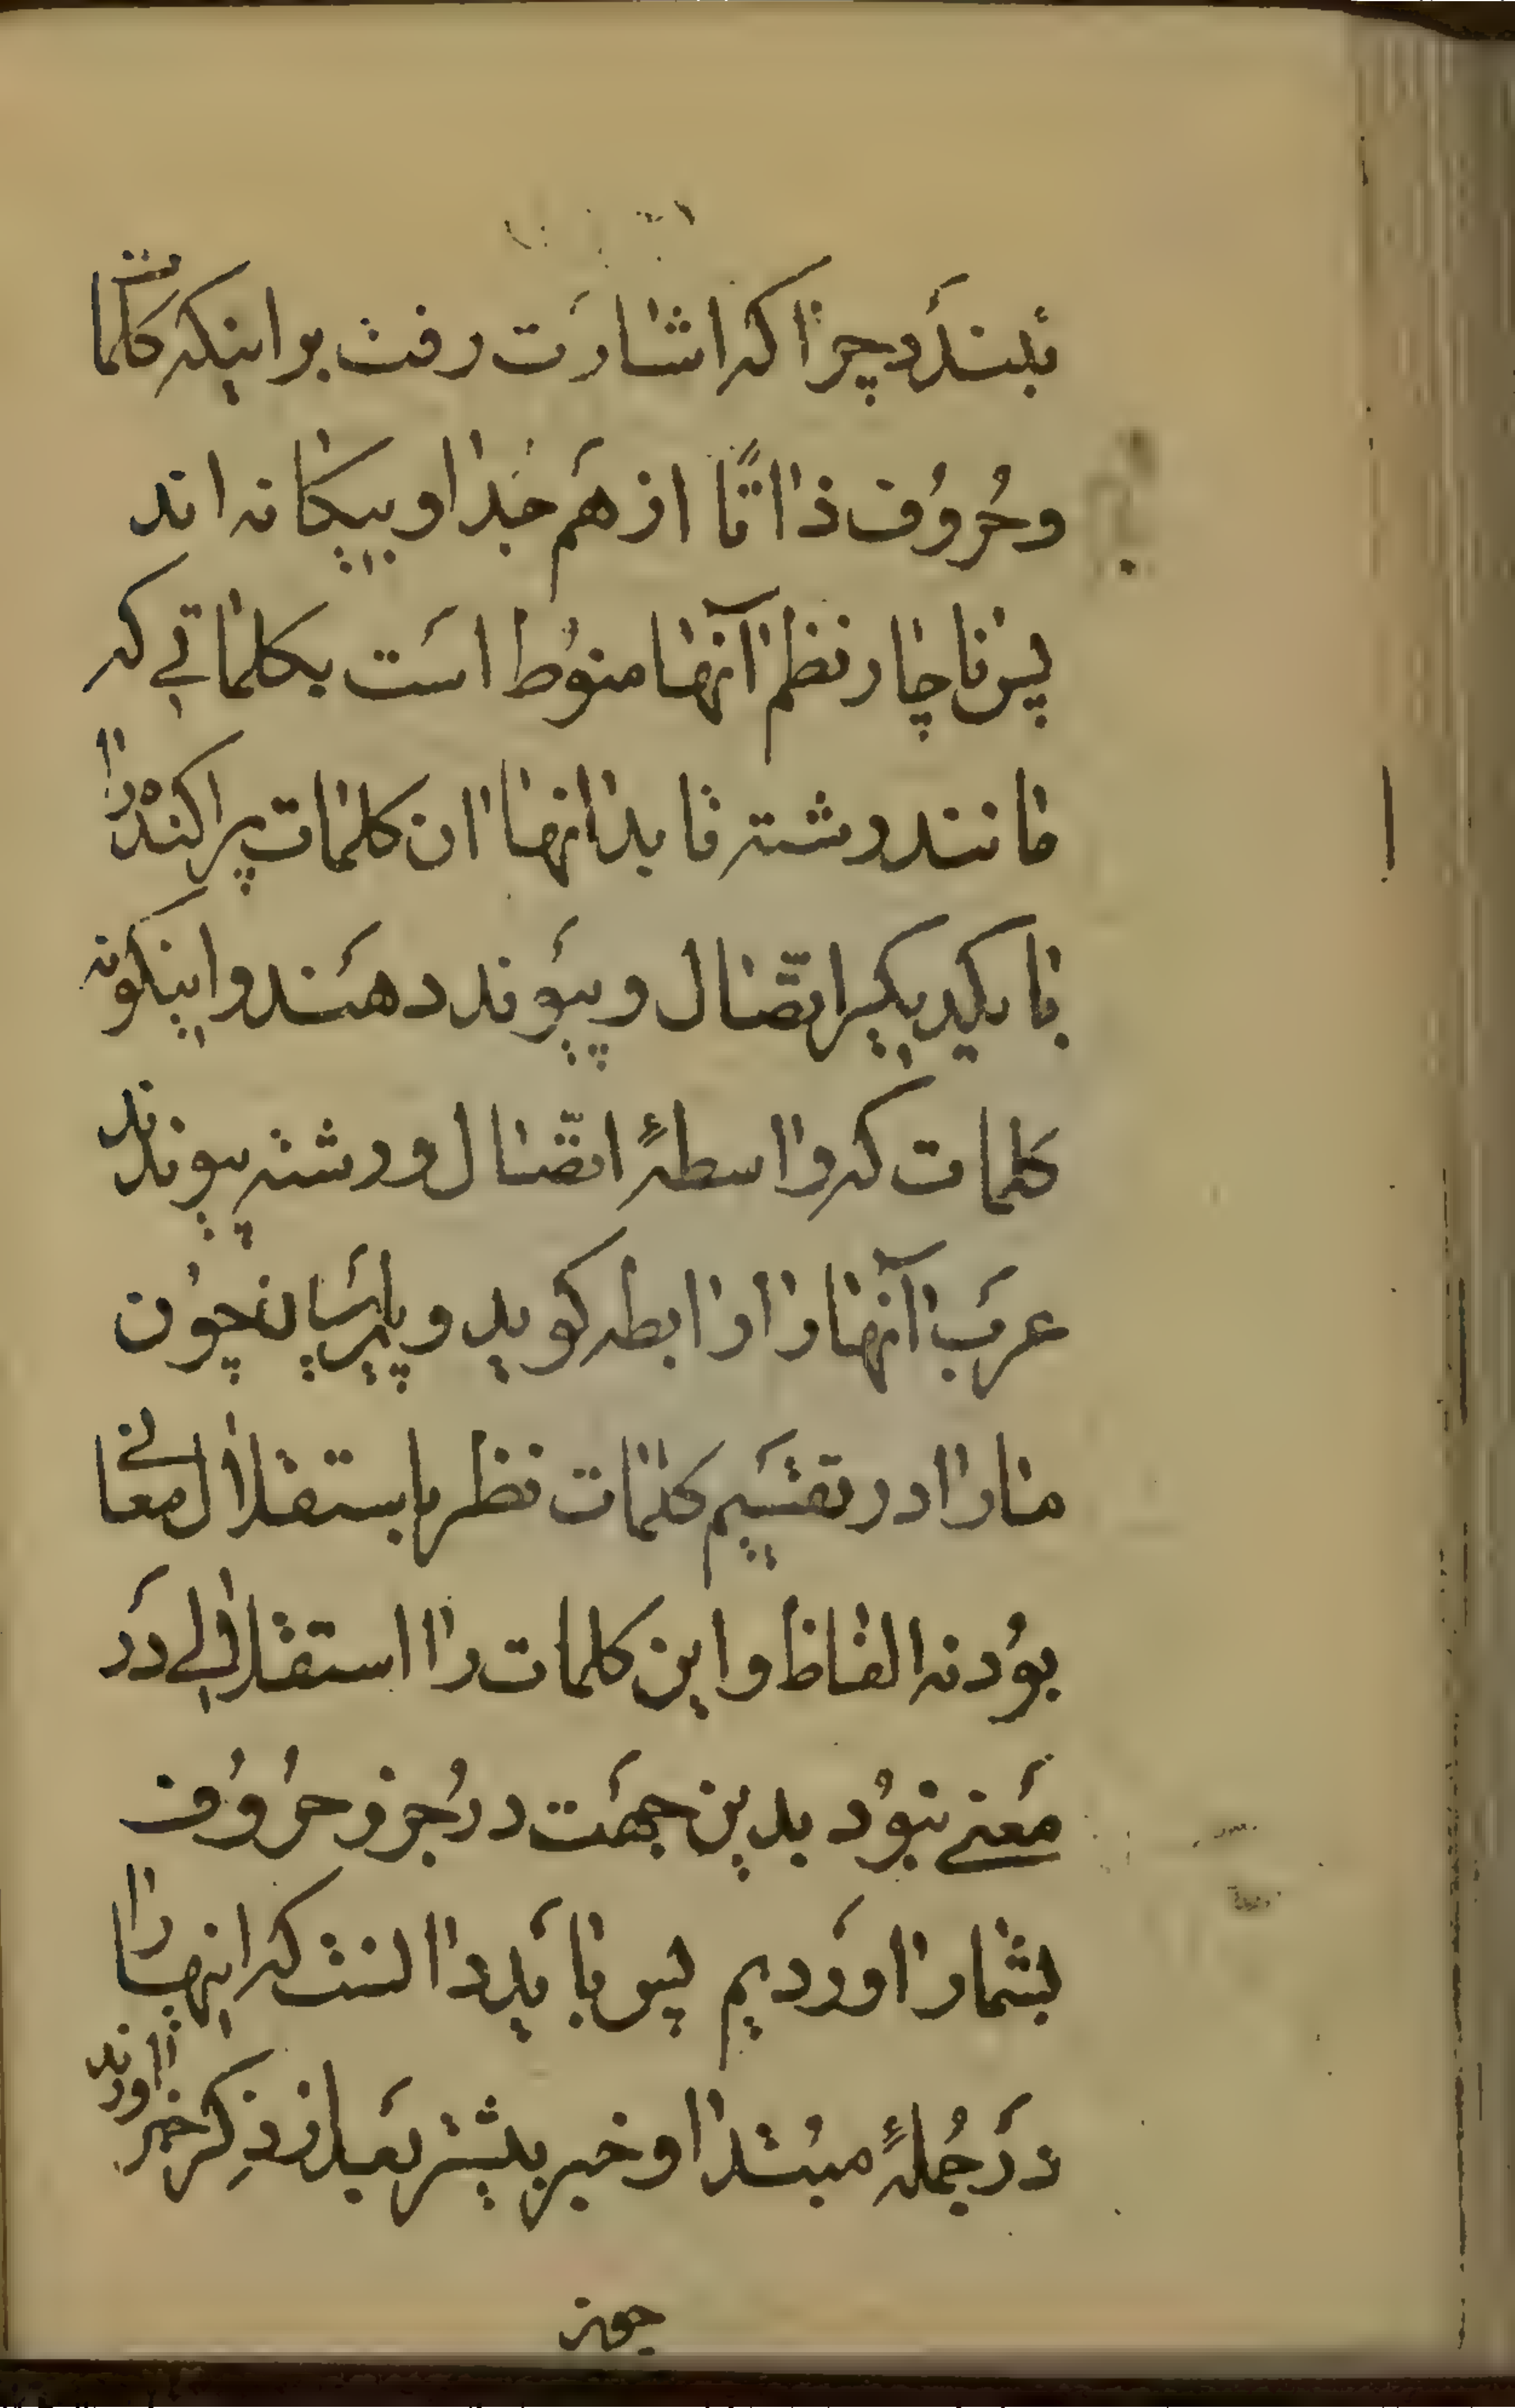 ببندد چرا که اشارت رفت بر اینکه کلمات
وحُروُف ذاتًا از هَم جُدا و بیکانه اند
پس ناچار نظم آنها منوُط اسَت بکلماتے که
مانند رشته تا بدانها ان کلمات پراکنده را
با یکدیکر اتّصال و پیَوند دهَند و اینکونه
کلمات که واسطهٔ اتّصال و رشته پیوندند
عرَب آنها را رابطه کوید و پارسَیان چوُن
ما را در تقسَیم کلمات نظر باستقلال معانے
بوُد نه الفاظ و این کلمات را استقلالے دَر
مَعنے نبوُد بدین جهَت در جُزو حُروُف
بشمار اورَدیم پس بایَد دانست که اینها را
دَر جُملهٔ مبُتدا و خبر بیشتر بَعد از ذِکر خبر اورند
چون